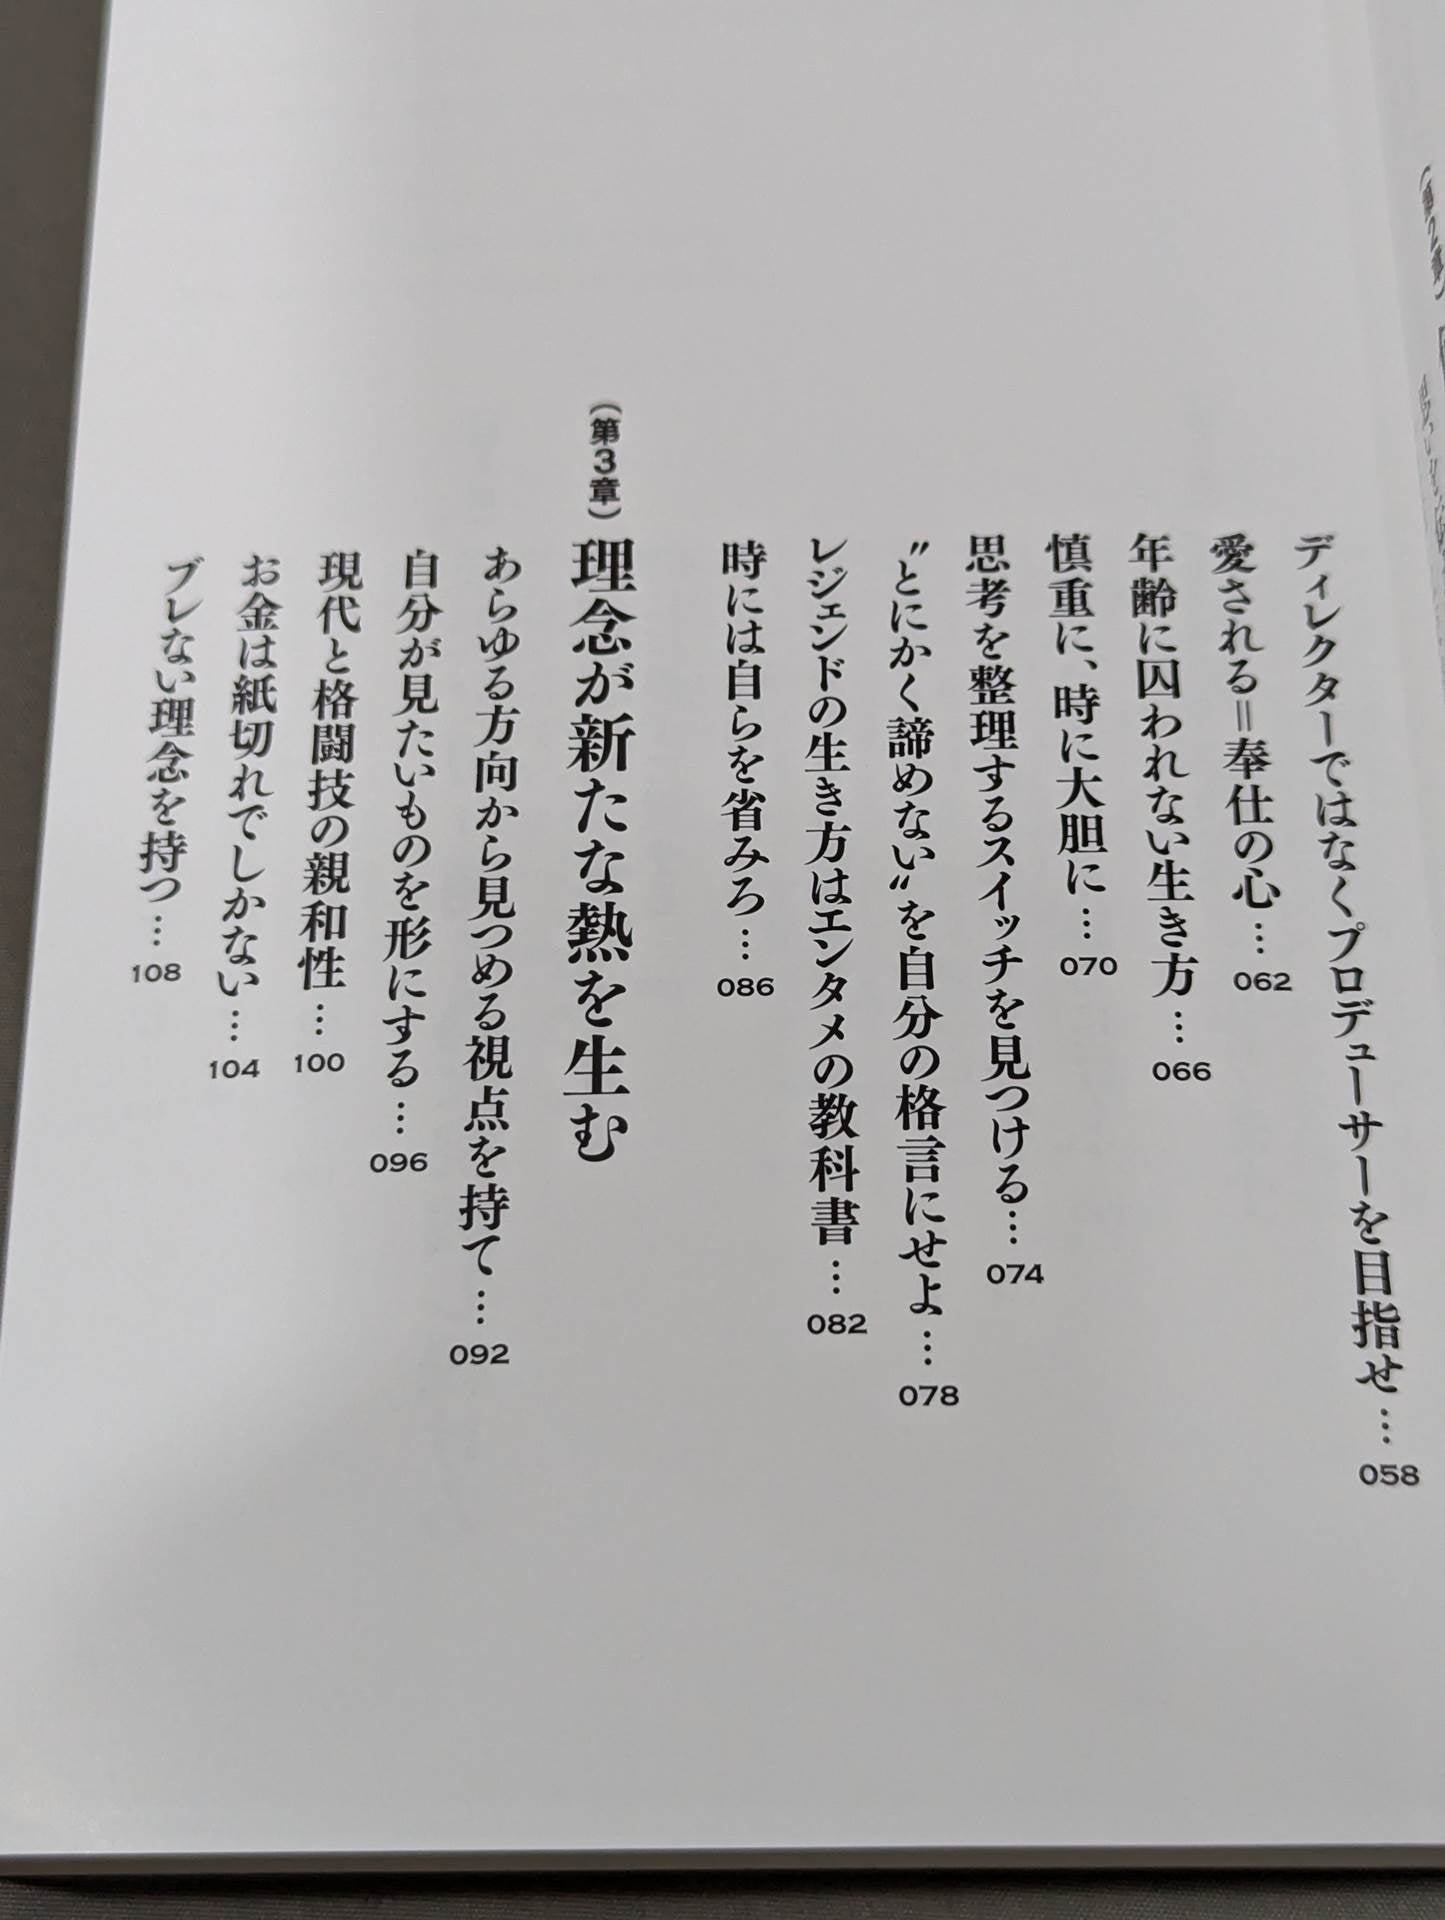 （第2章）
ディレクターではなくプロデューサーを目指せ…058
愛される＝奉仕の心…062
年齢に囚われない生き方…066
慎重に、時に大胆に…070
思考を整理するスイッチを見つける…074
〝とにかく諦めない〟を自分の格言にせよ…078
レジェンドの生き方はエンタメの教科書…082
時には自らを省みろ…086
（第3章）理念が新たな熱を生む
あらゆる方向から見つめる視点を持て…092
自分が見たいものを形にする…096
現代と格闘技の親和性…100
お金は紙切れでしかない…104
ブレない理念を持つ…108